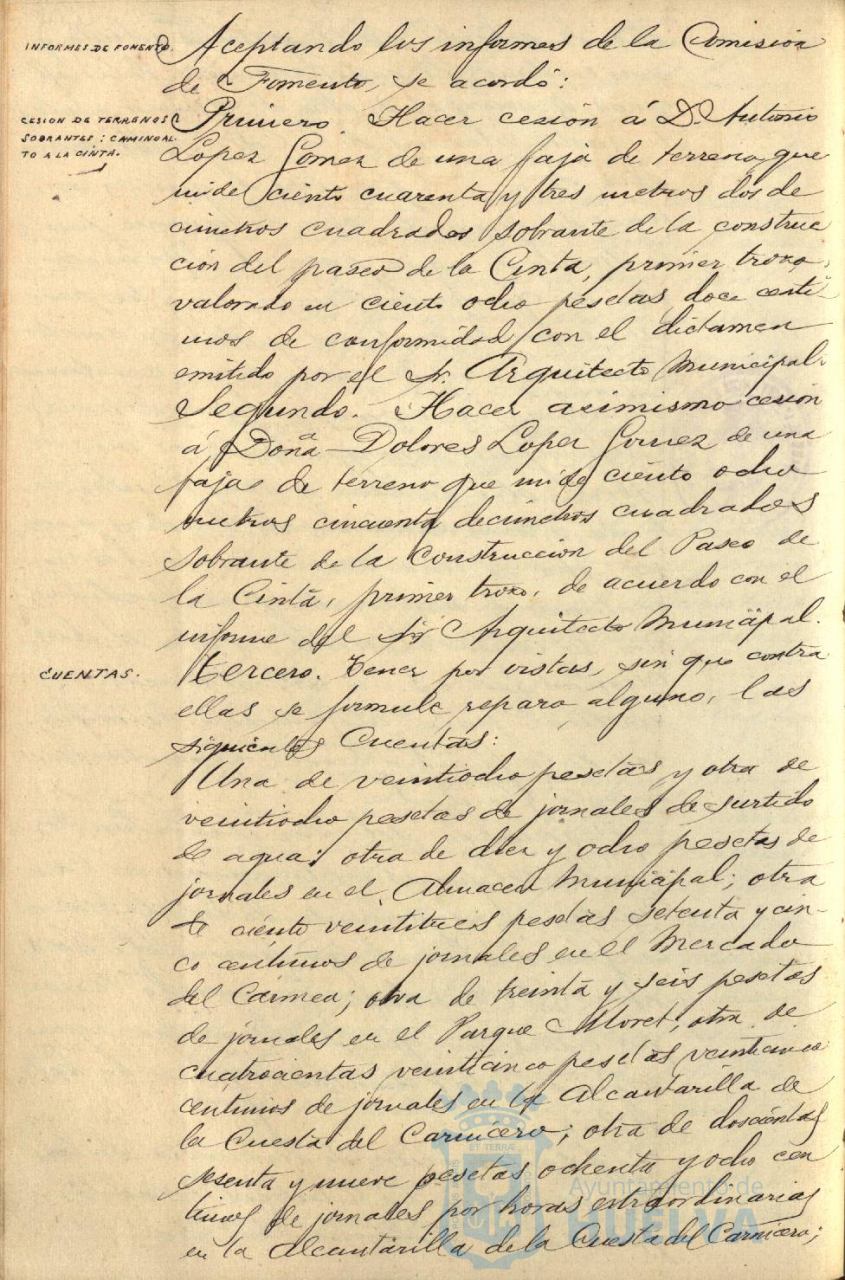 INFORMES DE FOMENTO.
Aceptando los informes de la Comision
de Fomento, se acordó:
CESION DE TERRENOS
SOBRANTES: CAMINO AL-
TO A LA CINTA.
Primero. Hacer cesión á D. Antonio
Lopez Gomez de una faja de terreno, que
mide ciento cuarenta y tres metros dos de
cimetros cuadrados sobrante de la construc
ción del paseo de la Cinta, primer trozo,
valorado en ciento ocho pesetas doce centi-
mos de conformidad con el dictamen
emitido por el Sr. Arquitecto Municipal.
Segundo. Hacer asimismo cesion
á Doña Dolores Lopez Gomez de una
faja de terreno que mide ciento ocho
metros cincuenta decimetros cuadrados
sobrante de la construccion del Paseo de
la Cinta, primer trozo, de acuerdo con el
informe del Sr Arquitecto Municipal.
CUENTAS.
Tercero. Tener por vistas, sin que contra
ellas se formule reparo alguno, las
siguientes Cuentas:
Una de veintiocho pesetas y otra de
veintiocho pesetas de jornales de surtido
de agua; otra de diez y ocho pesetas de
jornales en el Almacen Municipal; otra
de ciento veintitres pesetas setenta y cin-
co centimos de jornales en el Mercado
del Carmen; otra de treinta y seis pesetas
de jornales en el Parque Moret; otra de
cuatrocientas veinticinco pesetas veinticinco
centimos de jornales en la Alcantarilla de
la Cuesta del Carnicero; otra de doscientas
sesenta y nueve pesetas ochenta y ocho cen
timos de jornales por horas extraordinarias
en la Alcantarilla de la Cuesta del Carnicero;
Ayuntamiento de
HUELVA